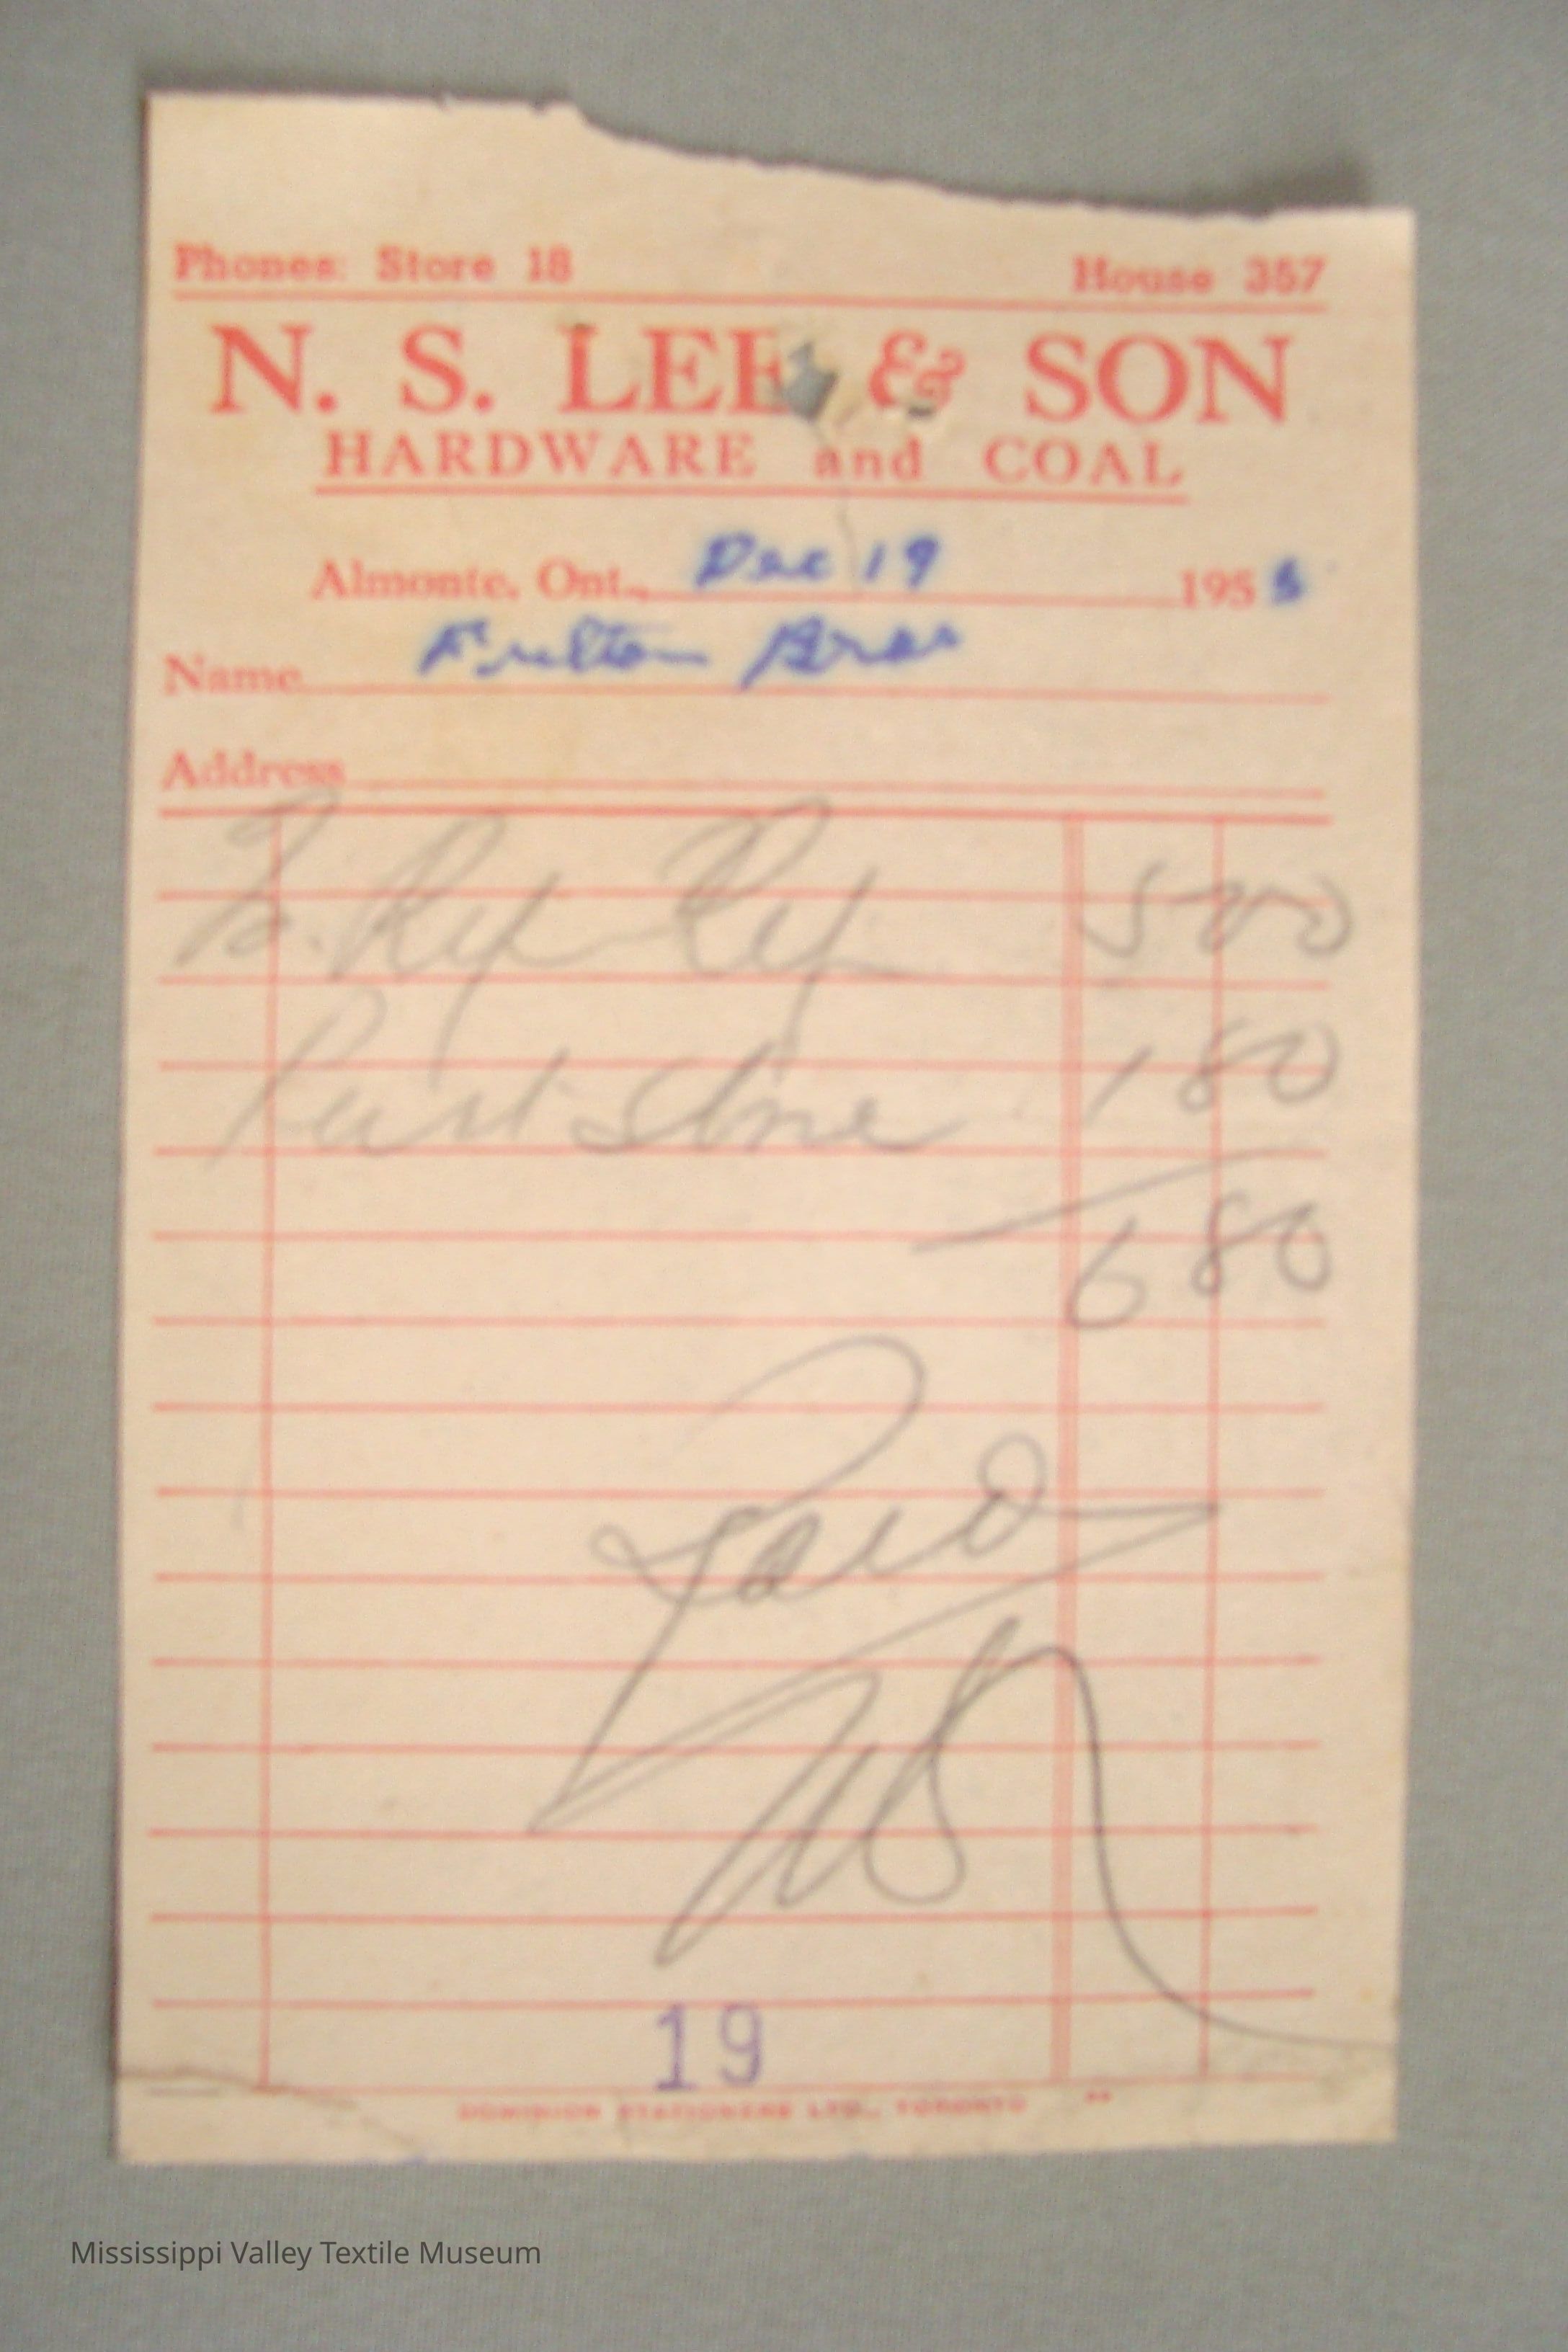 Phones: Store 18 House 357
N. S. LEE & SON
HARDWARE and COAL
Almonte, Ont., Dec 19 1955
Name Fulton Bros
Address
To 500
180
680
Paid
19
DOMINION STATIONERS LTD., TORONTO
Mississippi Valley Textile Museum